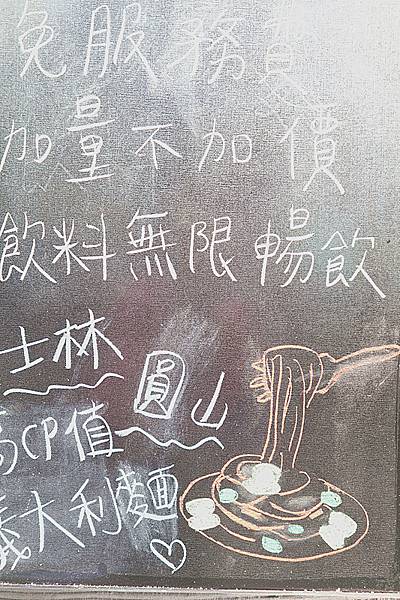 免服務費
加量不加價
飲料無限暢飲
士林
圓山
高CP值
義大利麵